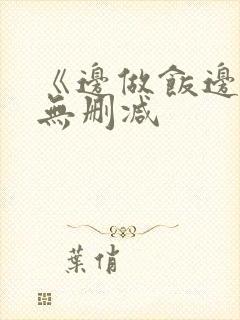 《邊做飯邊
無刪減
葉俏